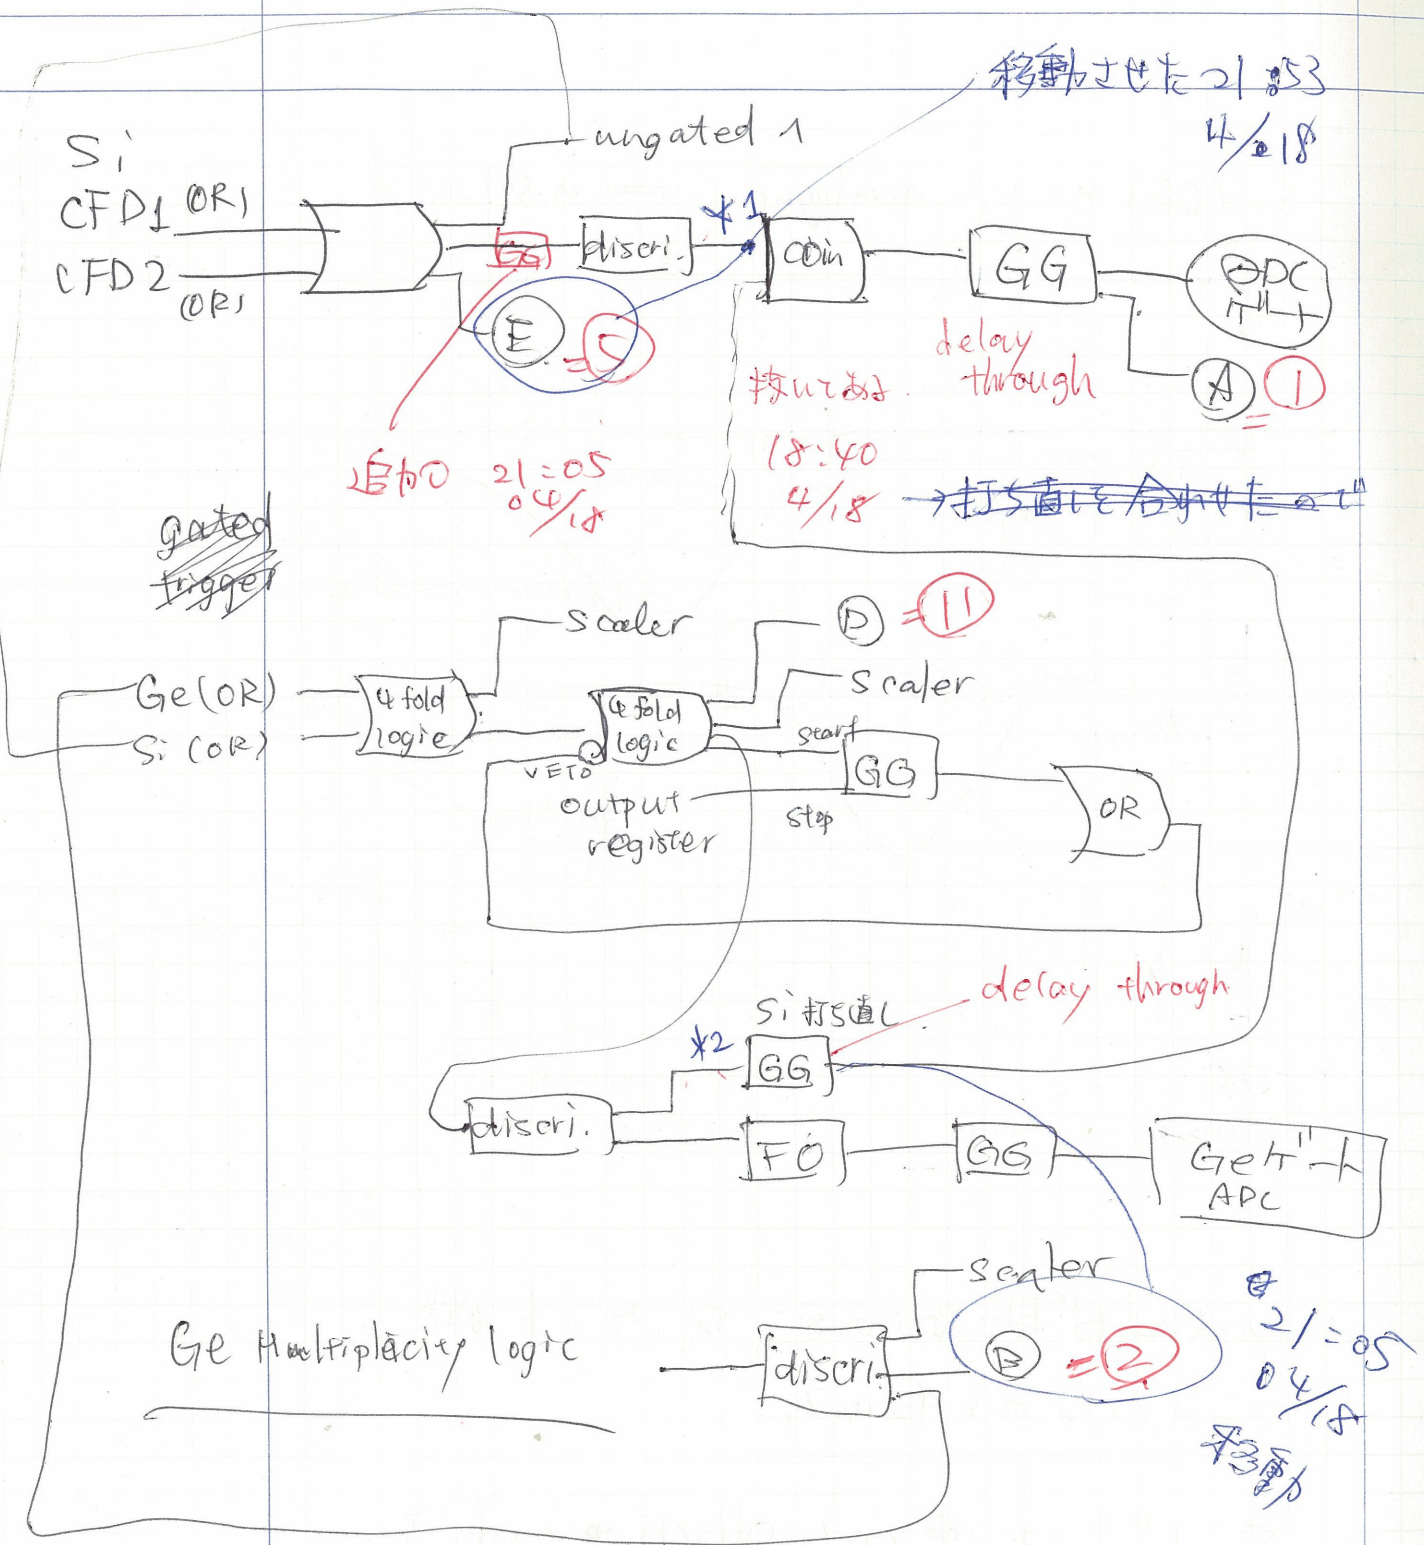 移動させた 21:53
4/18
ungated 1
Si
CFD1 (OR)
CFD2
(OR)
GG
discri.
*1
coin
GG
ADC
ゲート
E
=5
A
=1
delay
through
抜いてある
18:40
4/18
→打ち直しを合わせたので
追加 21:05
04/18
gated
trigger
scaler
D =11
Ge(OR)
Si(OR)
4 fold
logic
4 fold
logic
scaler
VETO
start
GG
output
register
stop
OR
Si打ち直し
delay through
*2
GG
discri.
FO
GG
Geゲート
ADC
scaler
Ge Multiplicity logic
discri.
B =2
21:05
04/18
移動